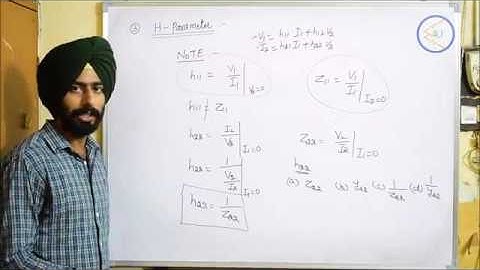 ③ H-Parameter :-
V₁ = h₁₁ I₁ + h₁₂ V₂
I₂ = h₂₁ I₁ + h₂₂ V₂
NOTE :-
h₁₁ = V₁/I₁ |V₂=0
Z₁₁ = V₁/I₁ |I₂=0
h₁₁ ≠ Z₁₁
h₂₂ = I₂/V₂ |I₁=0
Z₂₂ = V₂/I₂ |I₁=0
h₂₂ = 1/(V₂/I₂) |I₁=0
h₂₂
(a) Z₂₂ (b) Y₂₂ (c) 1/Z₂₂ (d) 1/Y₂₂
h₂₂ = 1/Z₂₂